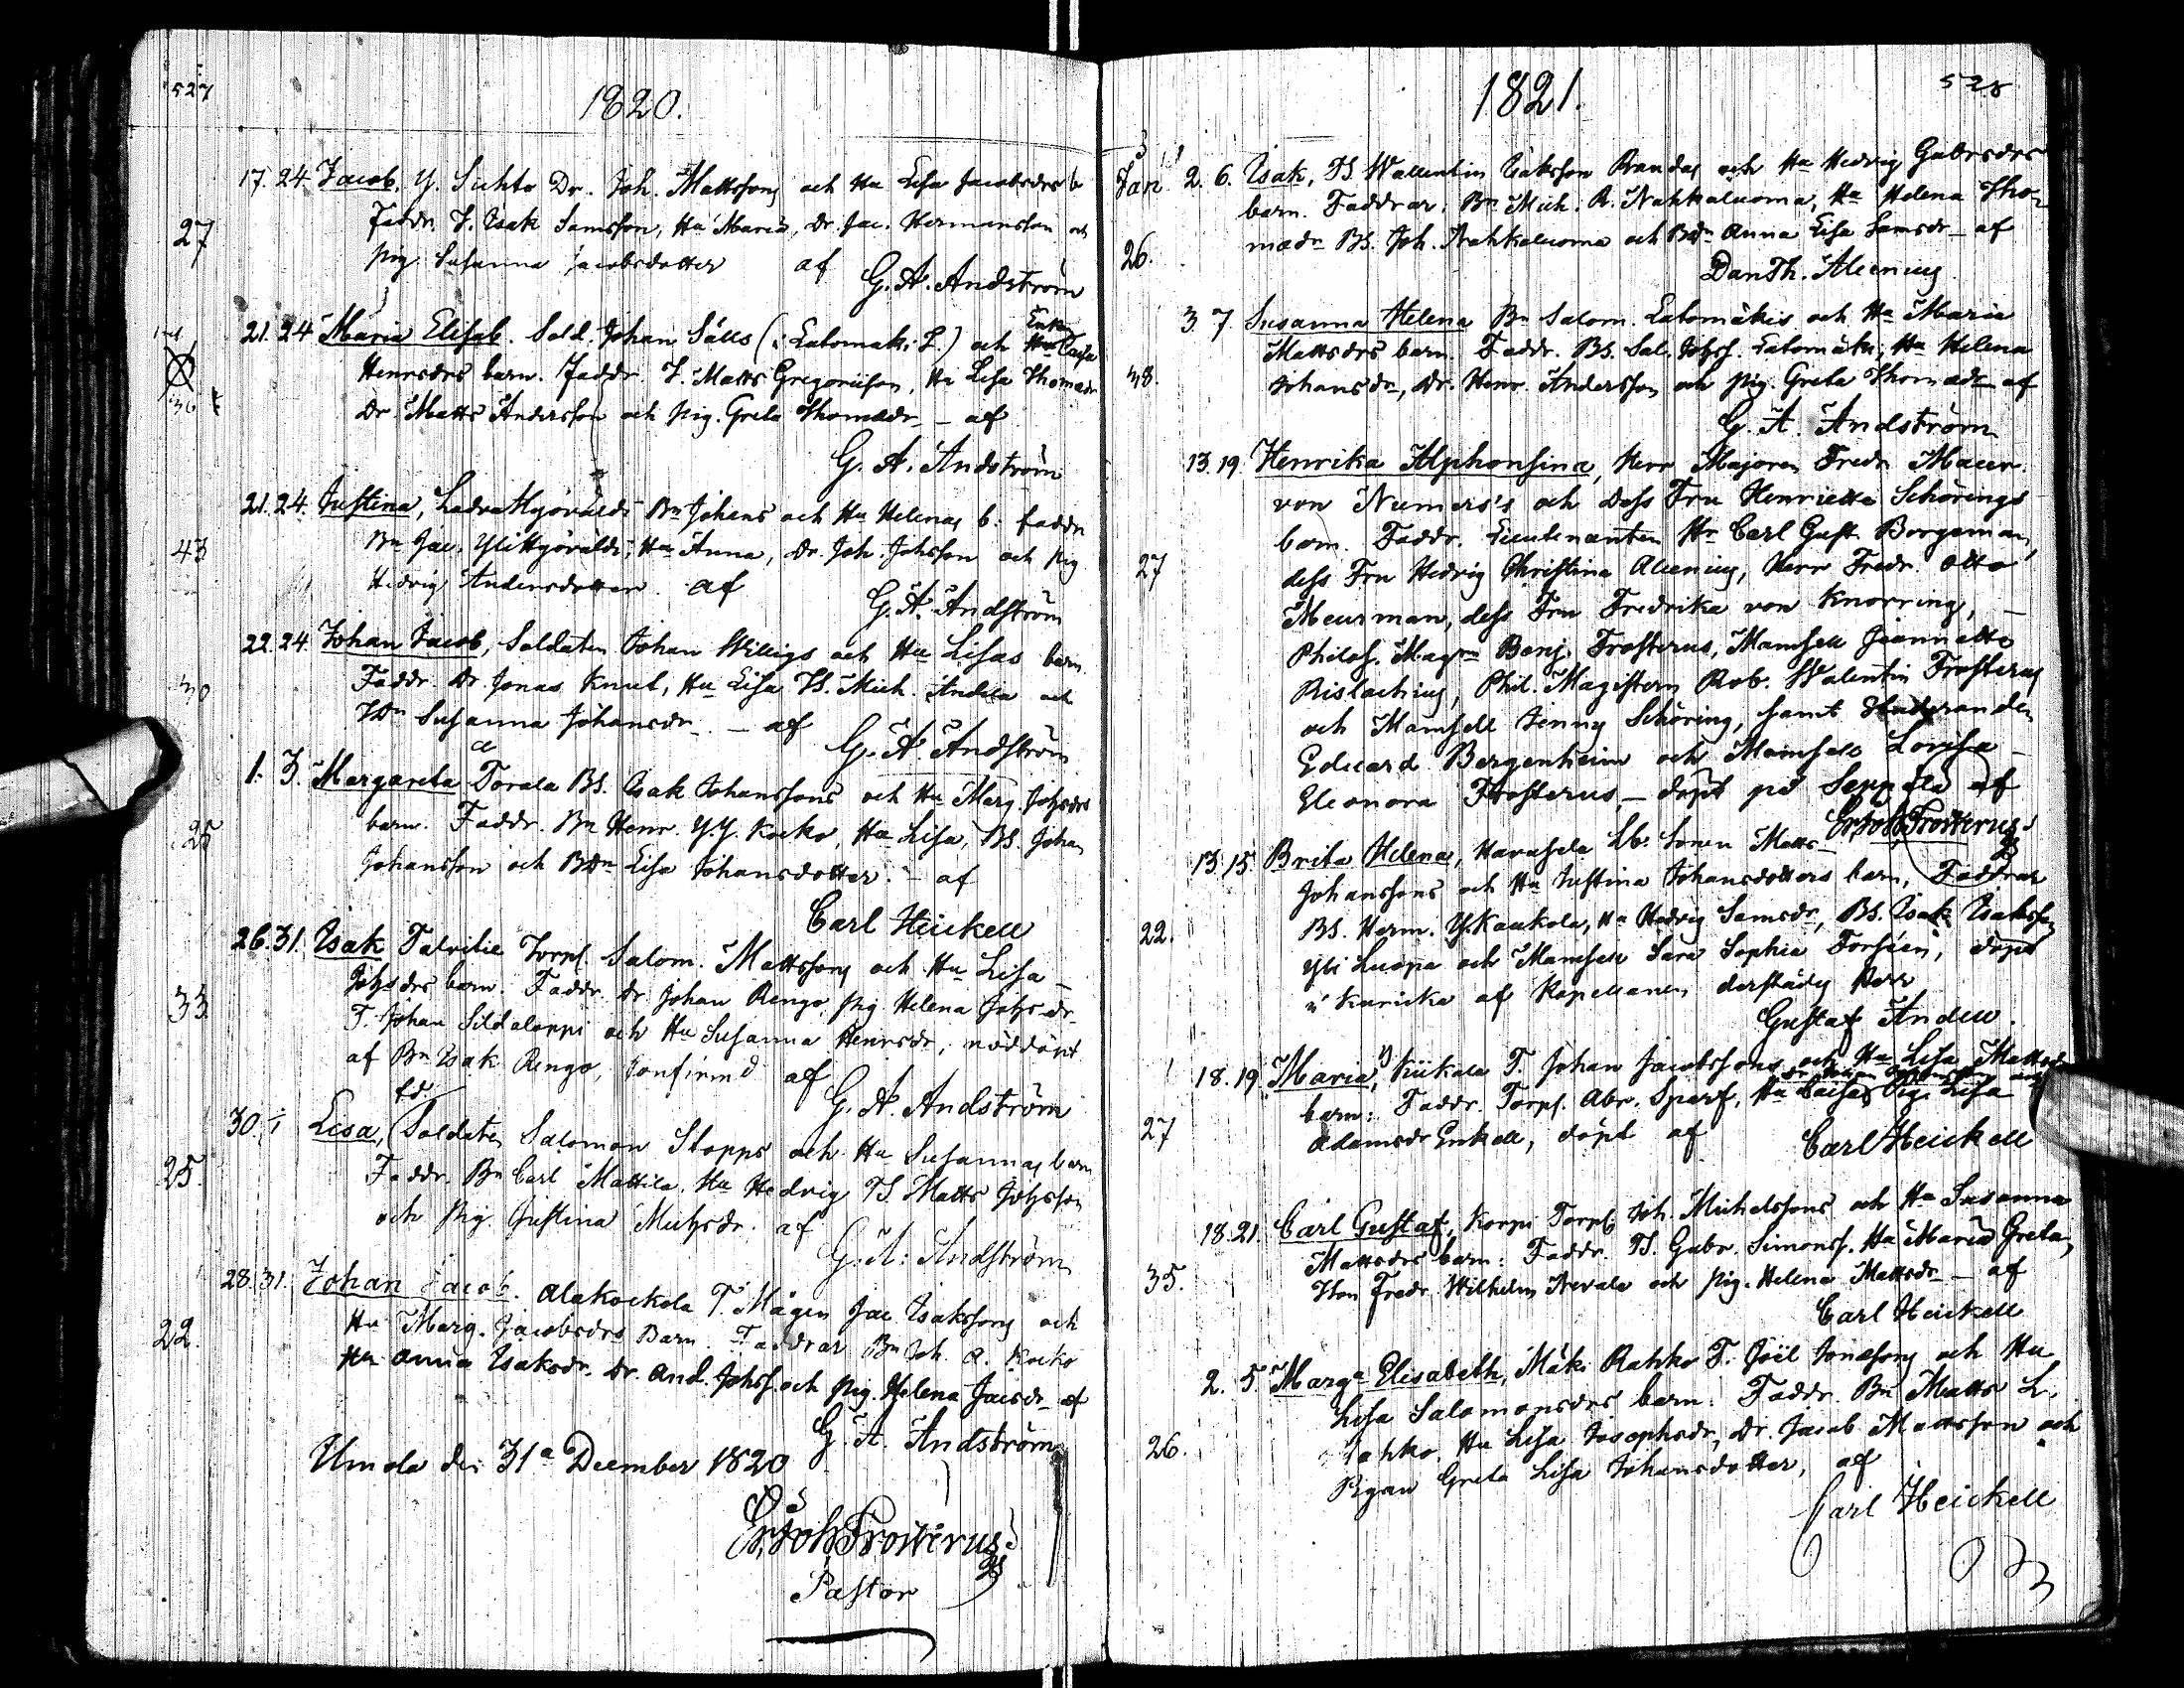 527
1820.
17. 24. Jacob, Y. Sichto Dr. Joh. Mattssons och Hu Lisa Jacobsdrs b.
Faddr. I. Isak Samsson, Hu Maria, Dr. Jac. Hermansson och
27
pig. Susanna Jacobsdotter af
G. A. Andström
21. 24 Maria Elisab. Sold. Johan Sälls (i Latomäki L.) och Enk Hu Caisa
Henrsdrs barn. Faddr. I. Matts Gregoriisson, Hu Lisa Thomædr
Dr. Matts Andersson och pig. Greta Thomædr – af
G. A. Andström
21. 24. Justina, Bn Johans och Hu Helenas b. faddr
43
Bn Jac. Hu Anna, Dr. Joh. Johsson och pig
Hedvig Andersdotter af
G. A. Andström
22. 24. Johan Jacob, Soldaten Johan Willigs och Hu Lisas barn
30
Faddr. Dr. Jonas Knut, Hu Lisa TS. Mich. Andela och
TDn Susanna Johansdr – af
G. A. Andström
1. 3. Margareta Torala BS. Isak Johanssons och Hu Marg. Johsdrs
25
barn. Faddr. Bn Henr. Y.Y. Kocko, Hu Lisa, BS. Johan
Johansson och BDn Lisa Johansdotter. – af
Carl Heickell
26. 31. Isak Talvitie Torpf. Salom. Mattssons och Hu Lisa
33
Johsdrs barn. Faddr. Dr. Johan Rengo, pig Helena Johsdr
T. Johan Sildaloppi och Hu Susanna Henrsdr, nöddöpt
af Bn Isak Rengo, Confirmd af
G. A. Andström
30. 1 Lisa, Soldaten Salomon Stopps och Hu Susannas barn
25.
Faddr. Bn Carl Mattila, Hu Hedvig TS. Matts Johsson
och pig. Justina Michsdr. af
G. A. Andström
28. 31. Johan Jacob. Alakockola T. Mågen Jac Isakssons och
22.
Hu Marg. Jacobsdrs Barn. Faddrar Bn Joh. A. Kocko
Hu Anna Isaksdr. Dr. And. Johss. och pig. Helena Jacsdr af
G. A. Andström
Umola den 31a December 1820
Er. Joh. Frosterus
Pastor
528
1821.
Jan. 2. 6. Isak, TS. Wallentin Isaksson Randas och Hu Hedvig Gabrsdrs
barn. Faddrar: Bn Mich. R. Nahkaluoma, Hu Helena Tho-
26.
mædr BS. Joh. Nahkaluoma och BDn Anna Lisa Samsdr – af
Dan Th. Alcenius
3. 7. Susanna Helena Bn Salom. Latomäkis och Hu Maria
38.
Mattsdrs barn. Faddr. BS. Sal. Johss. Latomäki, Hu Helena
Johansdr, Dr. Henr. Andersson och pig. Greta Thomædr af
G. A. Andström
13. 19. Henrika Alphonsina, Herr Majoren Fredr Maur.
von Numers's och dess Fru Henrietta Schörings
barn. Faddr. Lieutenanten Hr Carl Gust. Borgeman,
27
dess Fru Hedvig Christina Alcenius, Herr Fredr. Otto
Meurman, dess Fru Fredrika von Knorring, –
Philos. Magrn Benj. Frosterus, Mamsell Jeannette
Rislachius, Phil. Magistern Rob. Walentin Frosterus
och Mamsell Jenny Schöring, samt Studeranden
Eduard Bergenheim och Mamsell Lovisa –
Eleonora Frosterus, – döpt på Seppälä af
Er. Joh. Frosterus
13. 15. Brita Helena, Havusela Lb. Sonen Matts
Johanssons och Hu Justina Johansdotters barn, Faddrar
22.
BS. Herm. Y. Kaukola, Hu Hedvig Samsdr, BS. Isak Isaksson
Yli Luopa och Mamsell Sara Sophia Forsén, döpt
i Kuricka af Kapellanen derstädes Herr
Gustaf Andell.
18. 19. Maria, Kiikala T. Johan Jacobssons och Hu Lisa Mattsdr
barn: Faddr. Torpf. Abr. Sparf, Hu Caisa, Pig. Lisa
27
Adamsdr Enkell, döpt af
Carl Heickell
18. 21. Carl Gustaf, Korpi Torpf. Joh. Michelssons och Hu Susanna
Mattsdrs barn: Faddr. TS. Gabr. Simonss. Hu Maria Greta,
35.
Hon Fredr. Wilhelm Nevala och pig. Helena Mattsdr – af
Carl Heickell
2. 5. Marga Elisabeth, Mäki Rahko T. Joël Jonæsons och Hu
Lisa Salomonsdrs barn: Faddr. Bn Matts L.
26.
Hu Lisa Josephsdr, Dr. Jacob Mattsson och
Pigan Greta Lisa Johansdotter, af
Carl Heickell